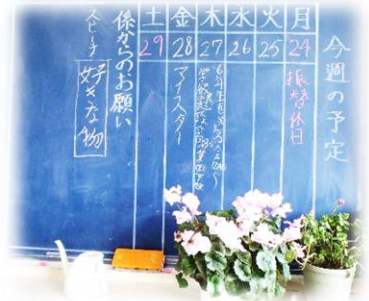 今週の予定
月 24 振替休日
火 25
水 26
木 27
金 28 マイスター
土 29
係からのお願い
スピーチ
好きな物